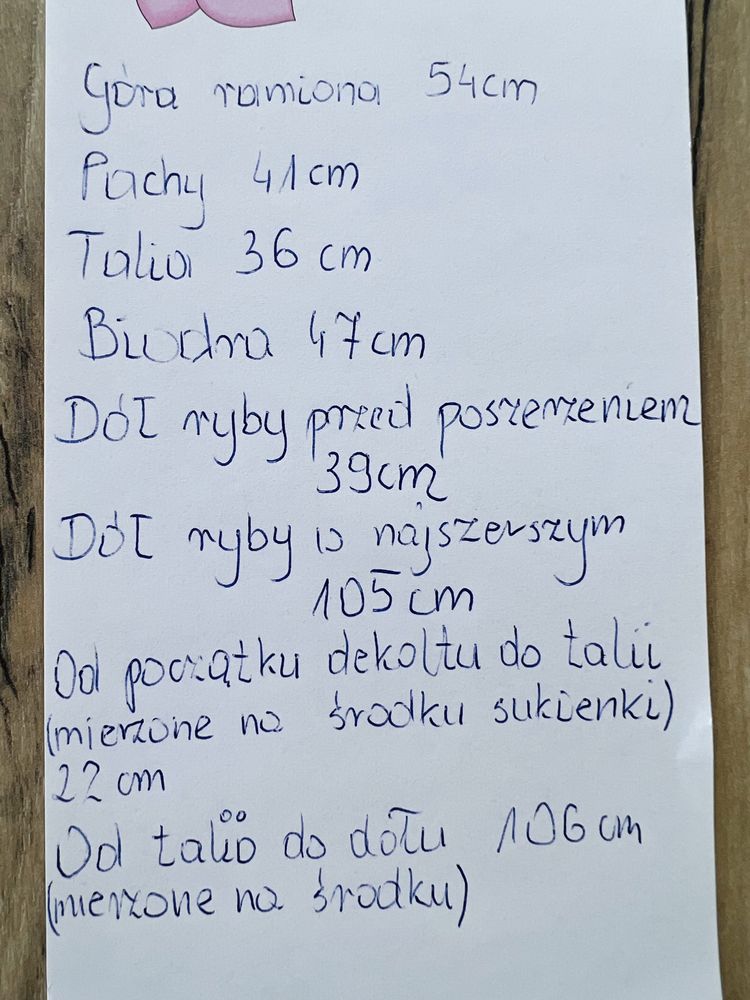 Góra ramiona 54cm
Pachy 41cm
Talia 36 cm
Biodra 47cm
Dół ryby przed poszerzeniem
39cm
Dół ryby w najszerszym
105cm
Od początku dekoltu do talii
(mierzone na środku sukienki)
22 cm
Od talii do dołu 106cm
(mierzone na środku)